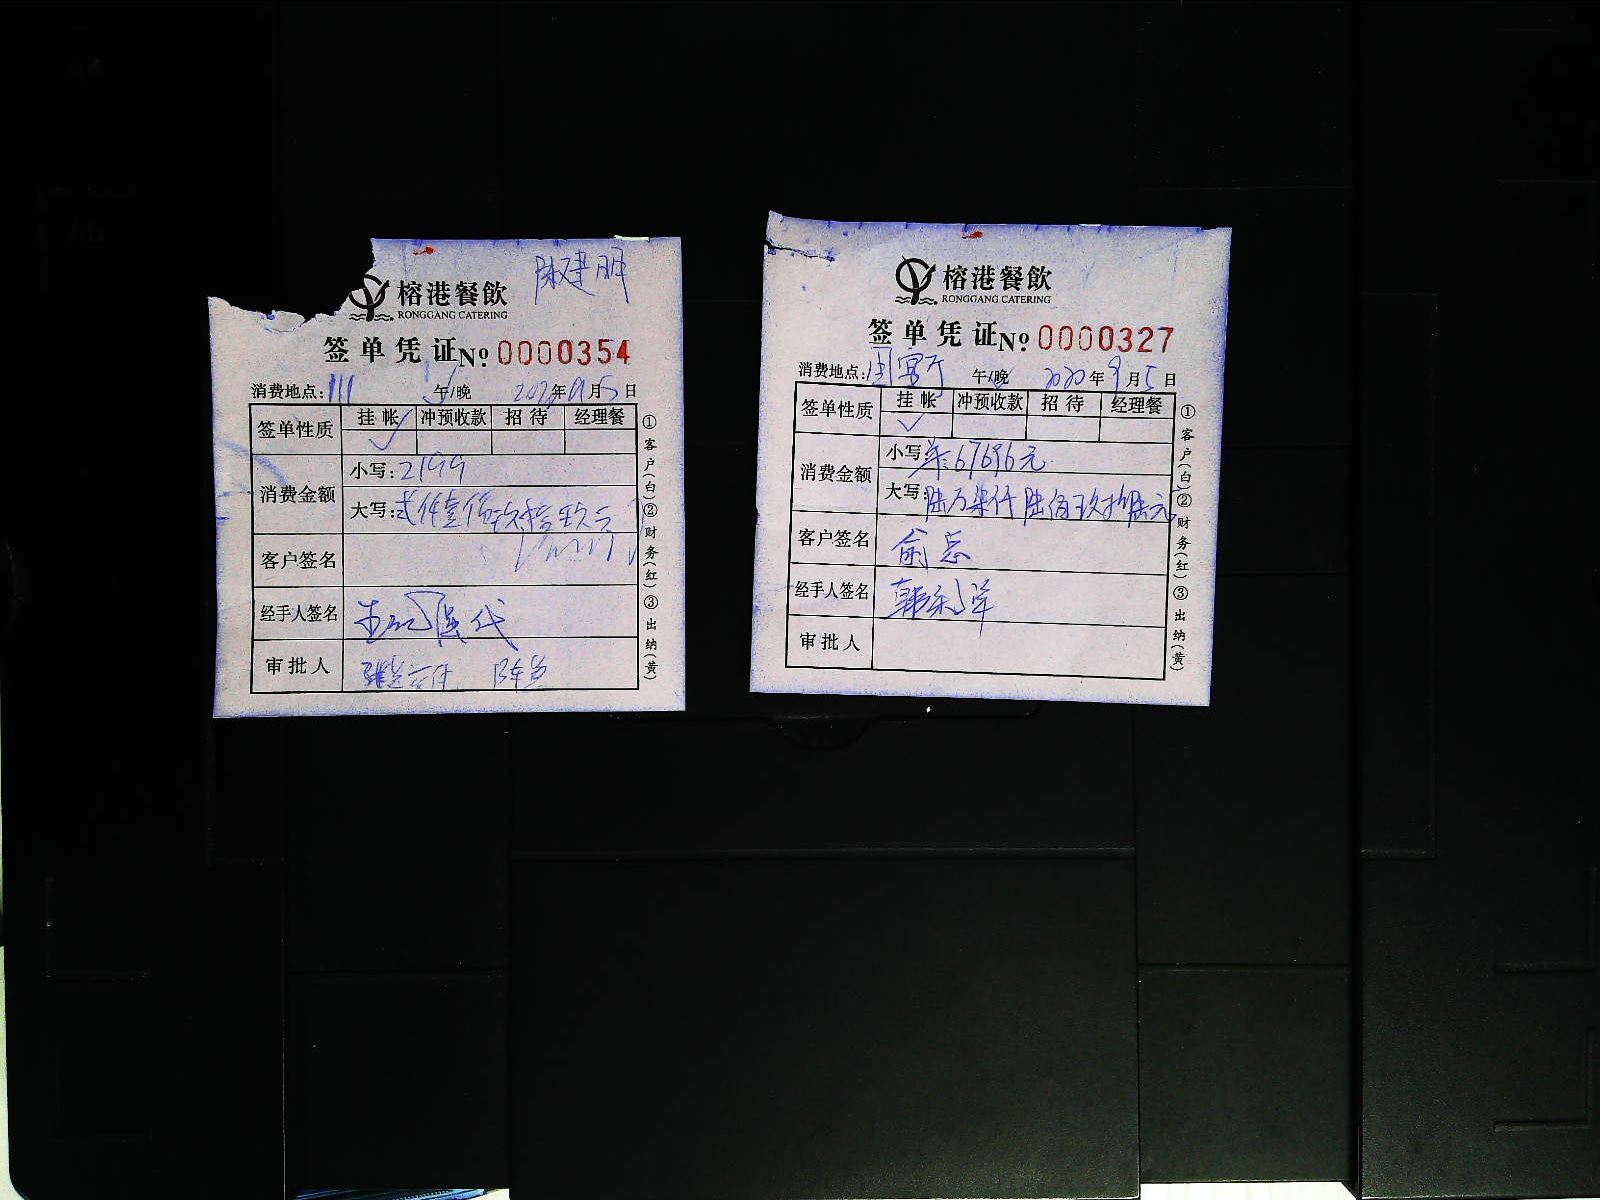 陈建明
榕港餐飲
RONGGANG CATERING
签单凭证 No 0000354
消费地点:111 午/晚 2020年9月5日
签单性质 挂帐 冲预收款 招待 经理餐
✓
消费金额
小写:2199
大写:贰仟壹佰玖拾玖元
客户签名
经手人签名 代
审批人
①客户(白)②财务(红)③出纳(黄)
榕港餐飲
RONGGANG CATERING
签单凭证 No 0000327
消费地点:国宴厅 午/晚 2020年9月5日
签单性质 挂帐 冲预收款 招待 经理餐
✓
消费金额
小写:67696元
大写:陆万柒仟陆佰玖拾陆元
客户签名
经手人签名
审批人
①客户(白)②财务(红)③出纳(黄)